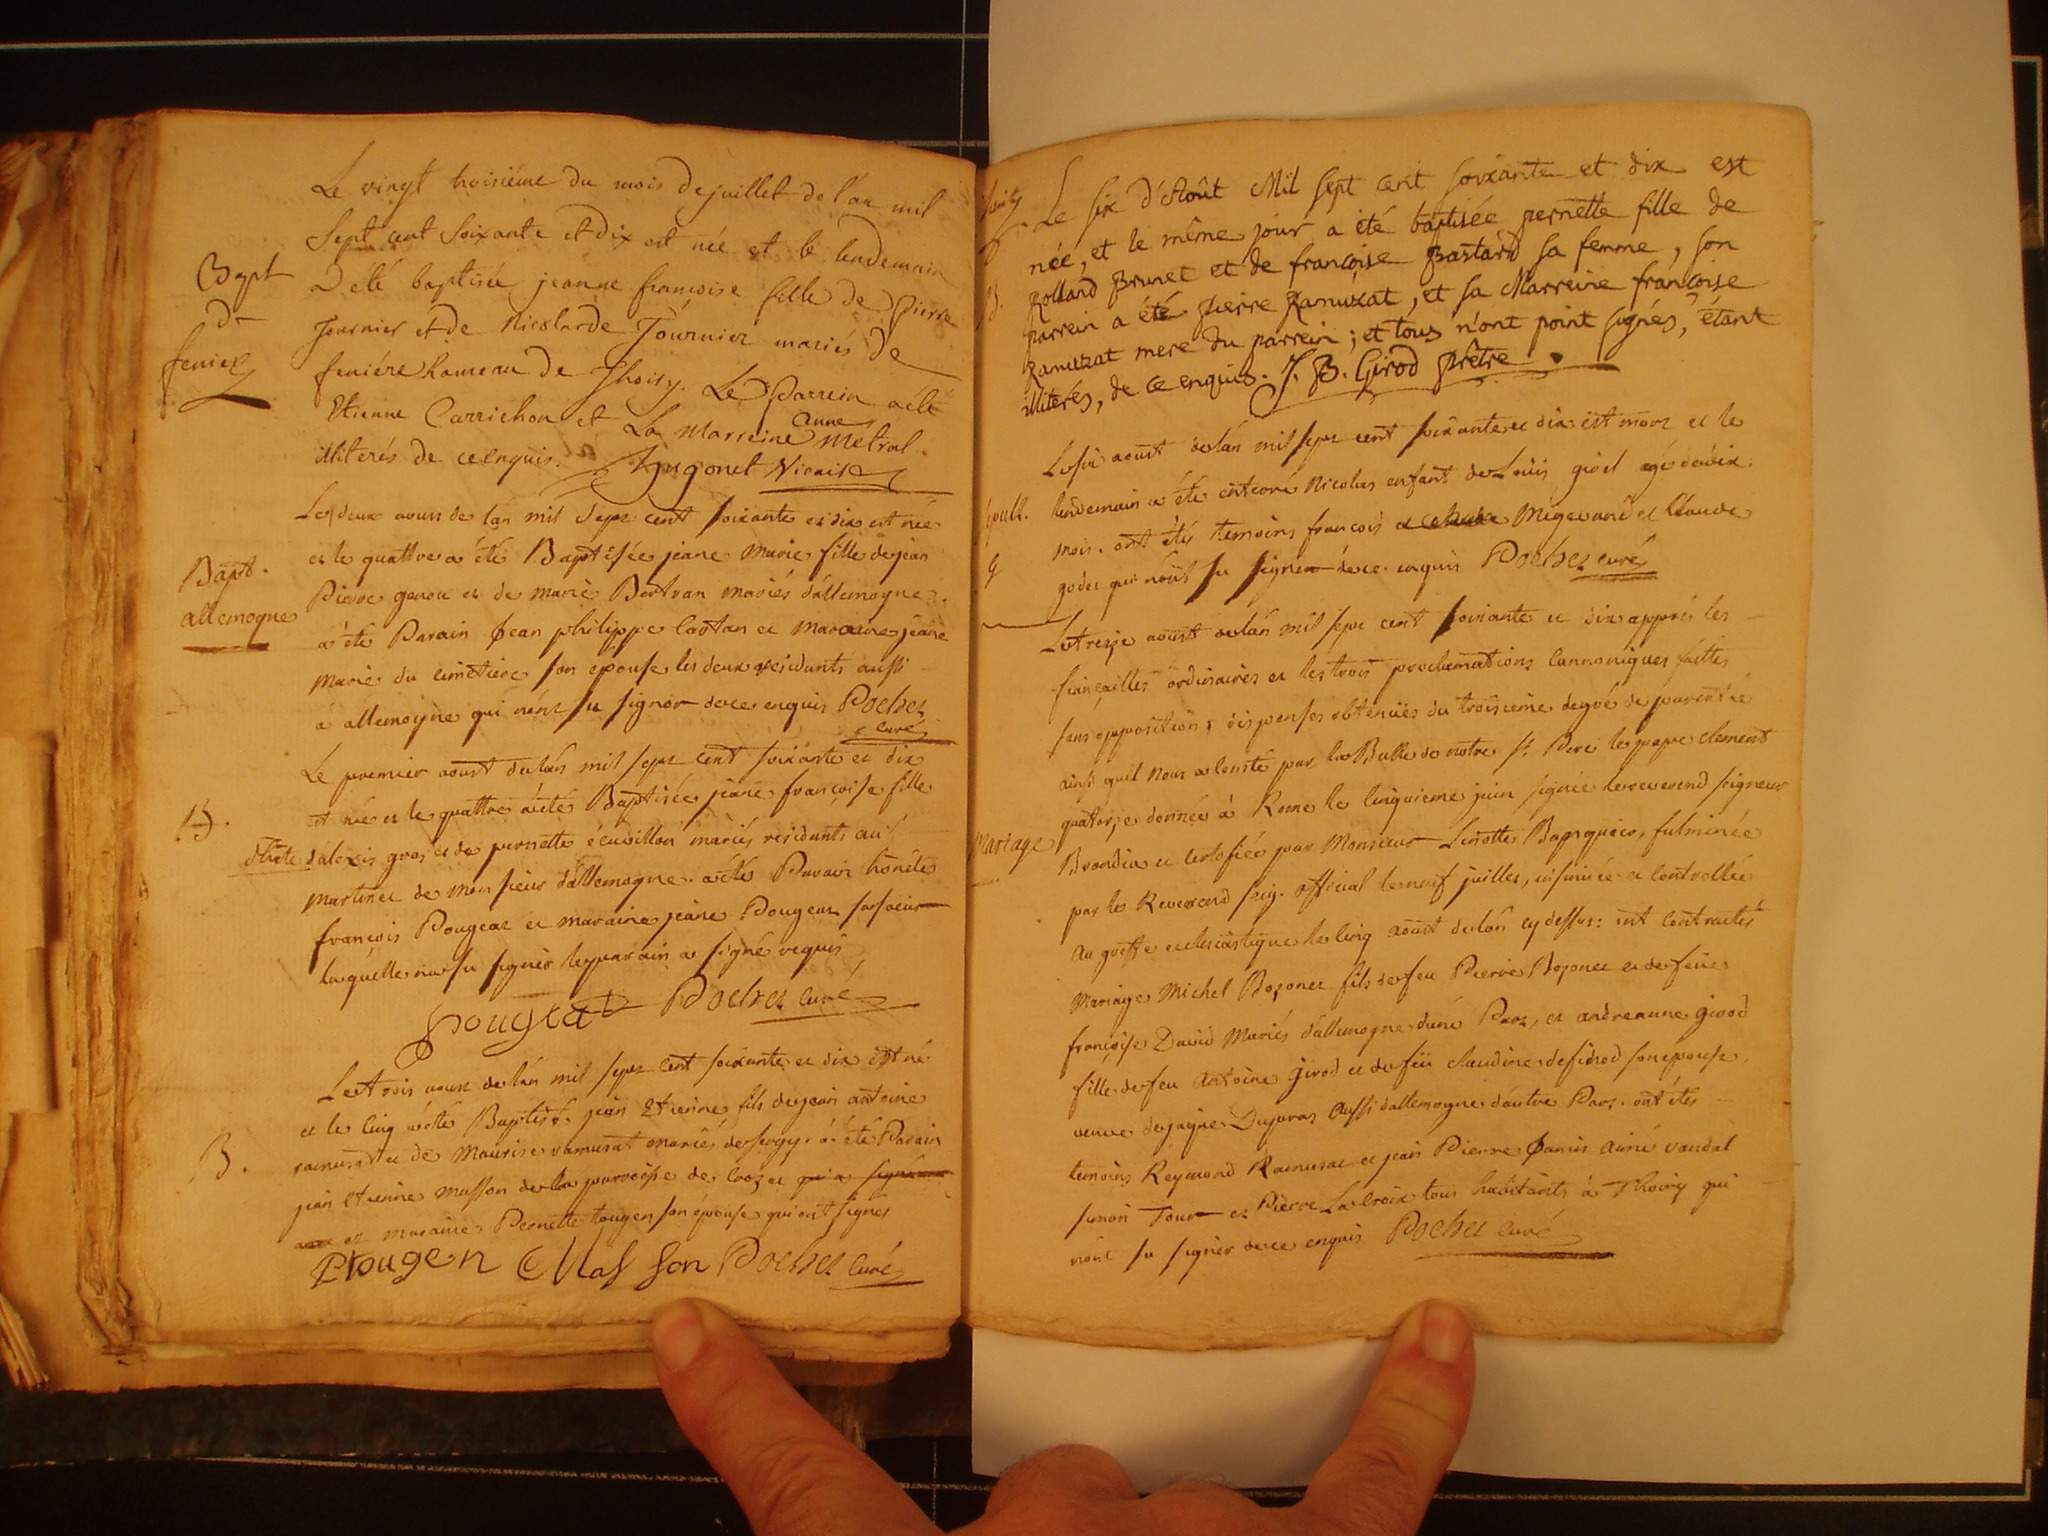 Le vingt troisiéme du mois de juillet de l'an mil
Sept cent soixante et dix est née et le lendemain
Bapt
a été baptisée jeanne françoise fille de Pierre
de
Fournier et de Nicolarde Fournier mariés de
feniere
feniére hameau de Thoiry. Le Parrein a été
Etienne Carrichon et La Marreine anne Metral.
illiterés de ce enquis. Hugonet Vicaire
Le deux aoust de lan mil sept cent soixante et dix est née
et le quattre a été Baptisée jeane Marie fille de jean
Bapt.
Pierre et de marie Bertran mariés dallemogne.
allemogne
a été Parain jean philippe et maraine jeane
Marie du cimétiere son epouse les deux residants aussi
a allemogne qui nont su signer de ce enquis Pochet
curé
Le premier aoust de lan mil sept cent soixante et dix
est née et le quattre a été Baptisée jeane françoise fille
B.
dalexis gros et de pernette écuvillon mariés residants au
martinet de monsieur dallemogne. a été Parain honéte
françois Pougeat et maraine jeane Pougeat sa soeur
laquelle na su signer le parain a signé requis
Pougeat Pochet curé
Le trois aoust de lan mil sept cent soixante et dix est né
et le cinq a été Baptisé jean Etienne fils de jean antoine
ramusat et de Maurise ramusat mariés de sergy. a été Parain
B.
jean Etienne Masson de la parroisse de et qui a signé
et maraine Pernette tougen son épouse qui ont signés
P tougen Masson Pochet curé
Le six d'Août Mil sept cent soixante et dix est
née, et le même jour a été baptisée pernette fille de
Rolland Brunet et de françoise Bastard sa femme, son
B.
parrein a été pierre Ramuzat, et sa Marreine françoise
Ramuzat mere du parrein; et tous n'ont point signés, étant
illiterés, de ce enquis. J. B. Girod Prêtre.
Le six aoust de lan mil sept cent soixante et dix est mort et le
lendemain a été enterré Nicolas enfant de Loüis girod agé de dix
sepult.
mois. ont étés temoins françois et claude Mégevand et Claude
godet qui nont su signer de ce enquis Pochet curé
Le treize aoust de lan mil sept cent soixante et dix apprés les
fiançailles ordinaires et les trois proclamations cannoniques faittes
sans opposition, dispenses obtenües du troisieme degré de parentée
ainsi quil nous a consté par la Bulle de notre st. Pere le pape clement
quatorze donnée à Rome le cinquieme juin signée le reverend seigneur
Mariage
Brandin et certifiée par Monsieur Linotte Banquier, fulminée
par le Reverend seig. official le neuf juillet, insinuée et controllée
au greffe ecclesiastique le cinq aoust de lan cy dessus: ont contractés
Mariage Michel Bozonet fils de feu Pierre Bozonet et de feüe
françoise David Mariés dallemogne dune Part, et andreanne Girod
fille de feu Antoine Girod et de feü claudine son épouse.
veuve de jaque Dupraz aussi dallemogne dautre Part. ont étés
temoins Reymond Ramusat et jean Pierre aimé vandal
simon Tour et Pierre Lacroix tous habitants à Thoiry qui
nont su signer de ce enquis Pochet curé